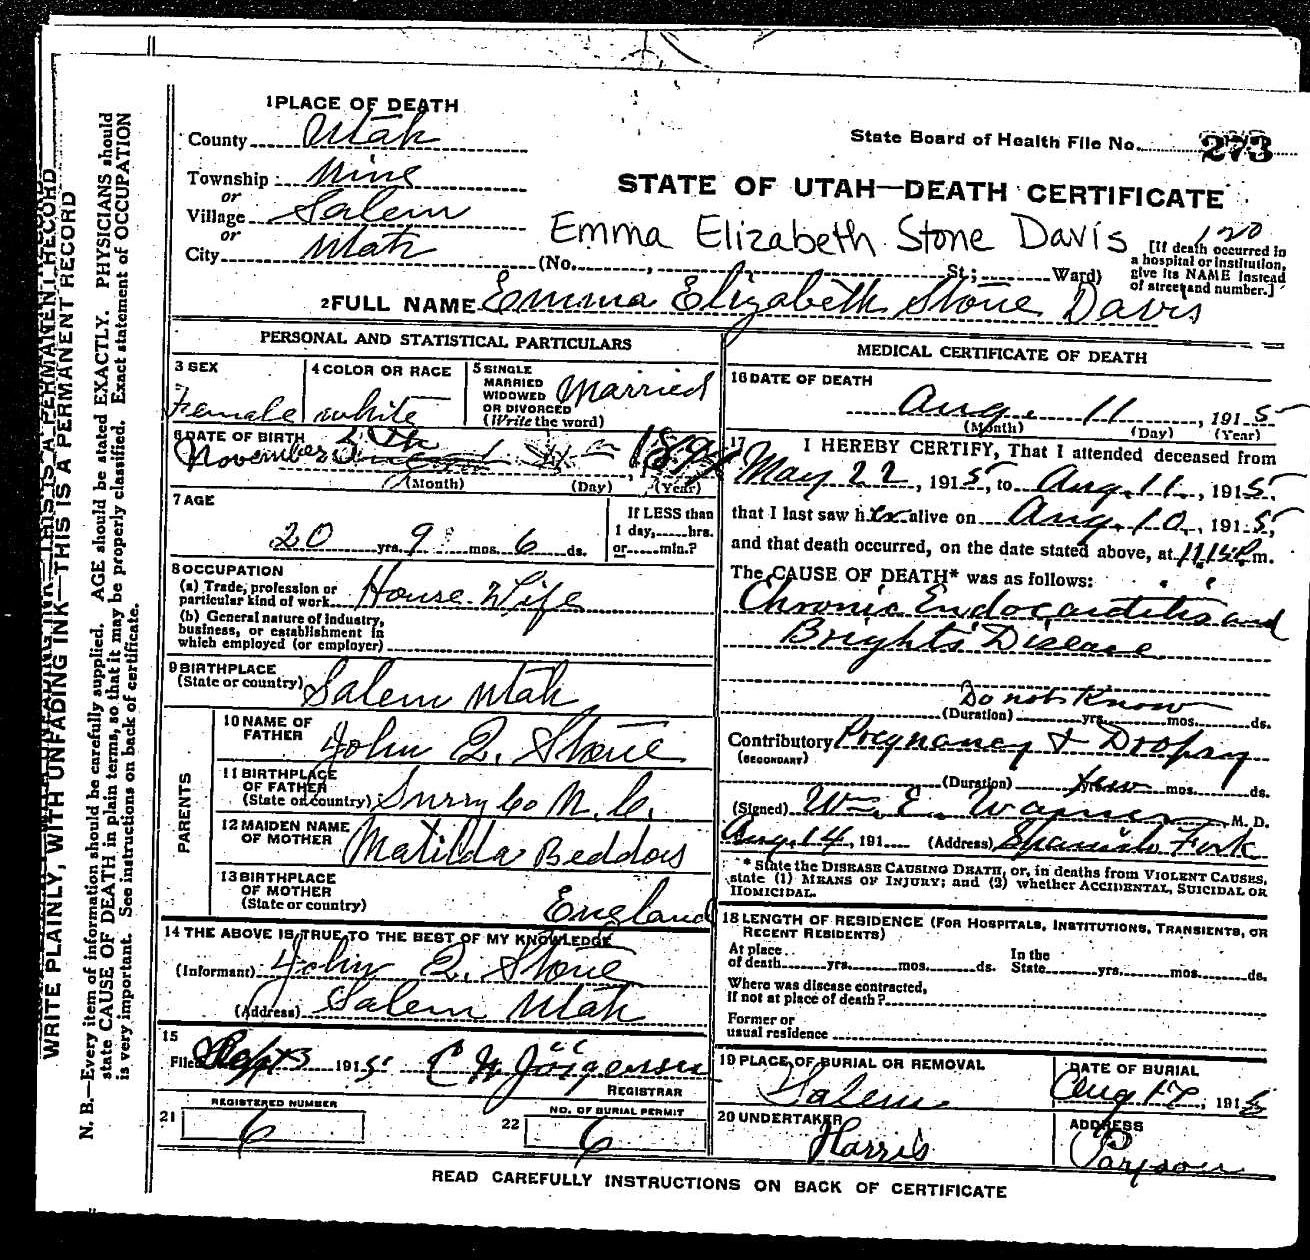 1 PLACE OF DEATH
County Utah
State Board of Health File No. 273
Township Nine
or
Village Salem
or
City Utah
STATE OF UTAH—DEATH CERTIFICATE
Emma Elizabeth Stone Davis
120
(No. , St.; Ward)
[If death occurred in a hospital or institution, give its NAME instead of street and number.]
2 FULL NAME Emma Elizabeth Stone Davis
PERSONAL AND STATISTICAL PARTICULARS
3 SEX
Female
4 COLOR OR RACE
white
5 SINGLE MARRIED WIDOWED OR DIVORCED (Write the word)
Married
6 DATE OF BIRTH
November 5th 1894
(Month) (Day) (Year)
7 AGE
20 yrs. 9 mos. 6 ds.
If LESS than 1 day, hrs. or min.?
8 OCCUPATION
(a) Trade, profession or particular kind of work House Wife
(b) General nature of industry, business, or establishment in which employed (or employer)
9 BIRTHPLACE
(State or country) Salem Utah
PARENTS
10 NAME OF FATHER John Q. Stone
11 BIRTHPLACE OF FATHER (State or country) Surry Co N. C.
12 MAIDEN NAME OF MOTHER Matilda Beddois
13 BIRTHPLACE OF MOTHER (State or country) England
14 THE ABOVE IS TRUE TO THE BEST OF MY KNOWLEDGE
(Informant) John Q. Stone
(Address) Salem Utah
15
Filed Sept 3 1915 C N Jörgensen
REGISTRAR
21 REGISTERED NUMBER
6
22 NO. OF BURIAL PERMIT
6
MEDICAL CERTIFICATE OF DEATH
16 DATE OF DEATH
Aug. 11, 1915
(Month) (Day) (Year)
17 I HEREBY CERTIFY, That I attended deceased from
May 22, 1915, to Aug. 11, 1915,
that I last saw her alive on Aug. 10, 1915
and that death occurred, on the date stated above, at P.m.
The CAUSE OF DEATH* was as follows:
Chronic Endocarditis and
Brights Disease
Do not Know
(Duration) yrs. mos. ds.
Contributory Pregnancy & Dropsy
(SECONDARY)
(Duration) few mos. ds.
(Signed) Wm. E. Warner M. D.
Aug. 14, 191 (Address) Spanish Fork
* State the DISEASE CAUSING DEATH, or, in deaths from VIOLENT CAUSES,
state (1) MEANS OF INJURY; and (2) whether ACCIDENTAL, SUICIDAL OR
HOMICIDAL.
18 LENGTH OF RESIDENCE (FOR HOSPITALS, INSTITUTIONS, TRANSIENTS, OR
RECENT RESIDENTS)
At place of death yrs. mos. ds. In the State yrs. mos. ds.
Where was disease contracted,
if not at place of death?
Former or
usual residence
19 PLACE OF BURIAL OR REMOVAL
Salem
DATE OF BURIAL
Aug 1915
20 UNDERTAKER
Harris
ADDRESS
Payson
READ CAREFULLY INSTRUCTIONS ON BACK OF CERTIFICATE
WRITE PLAINLY, WITH UNFADING INK—THIS IS A PERMANENT RECORD
N. B.—Every item of information should be carefully supplied. AGE should be stated EXACTLY. PHYSICIANS should
state CAUSE OF DEATH in plain terms, so that it may be properly classified. Exact statement of OCCUPATION
is very important. See instructions on back of certificate.